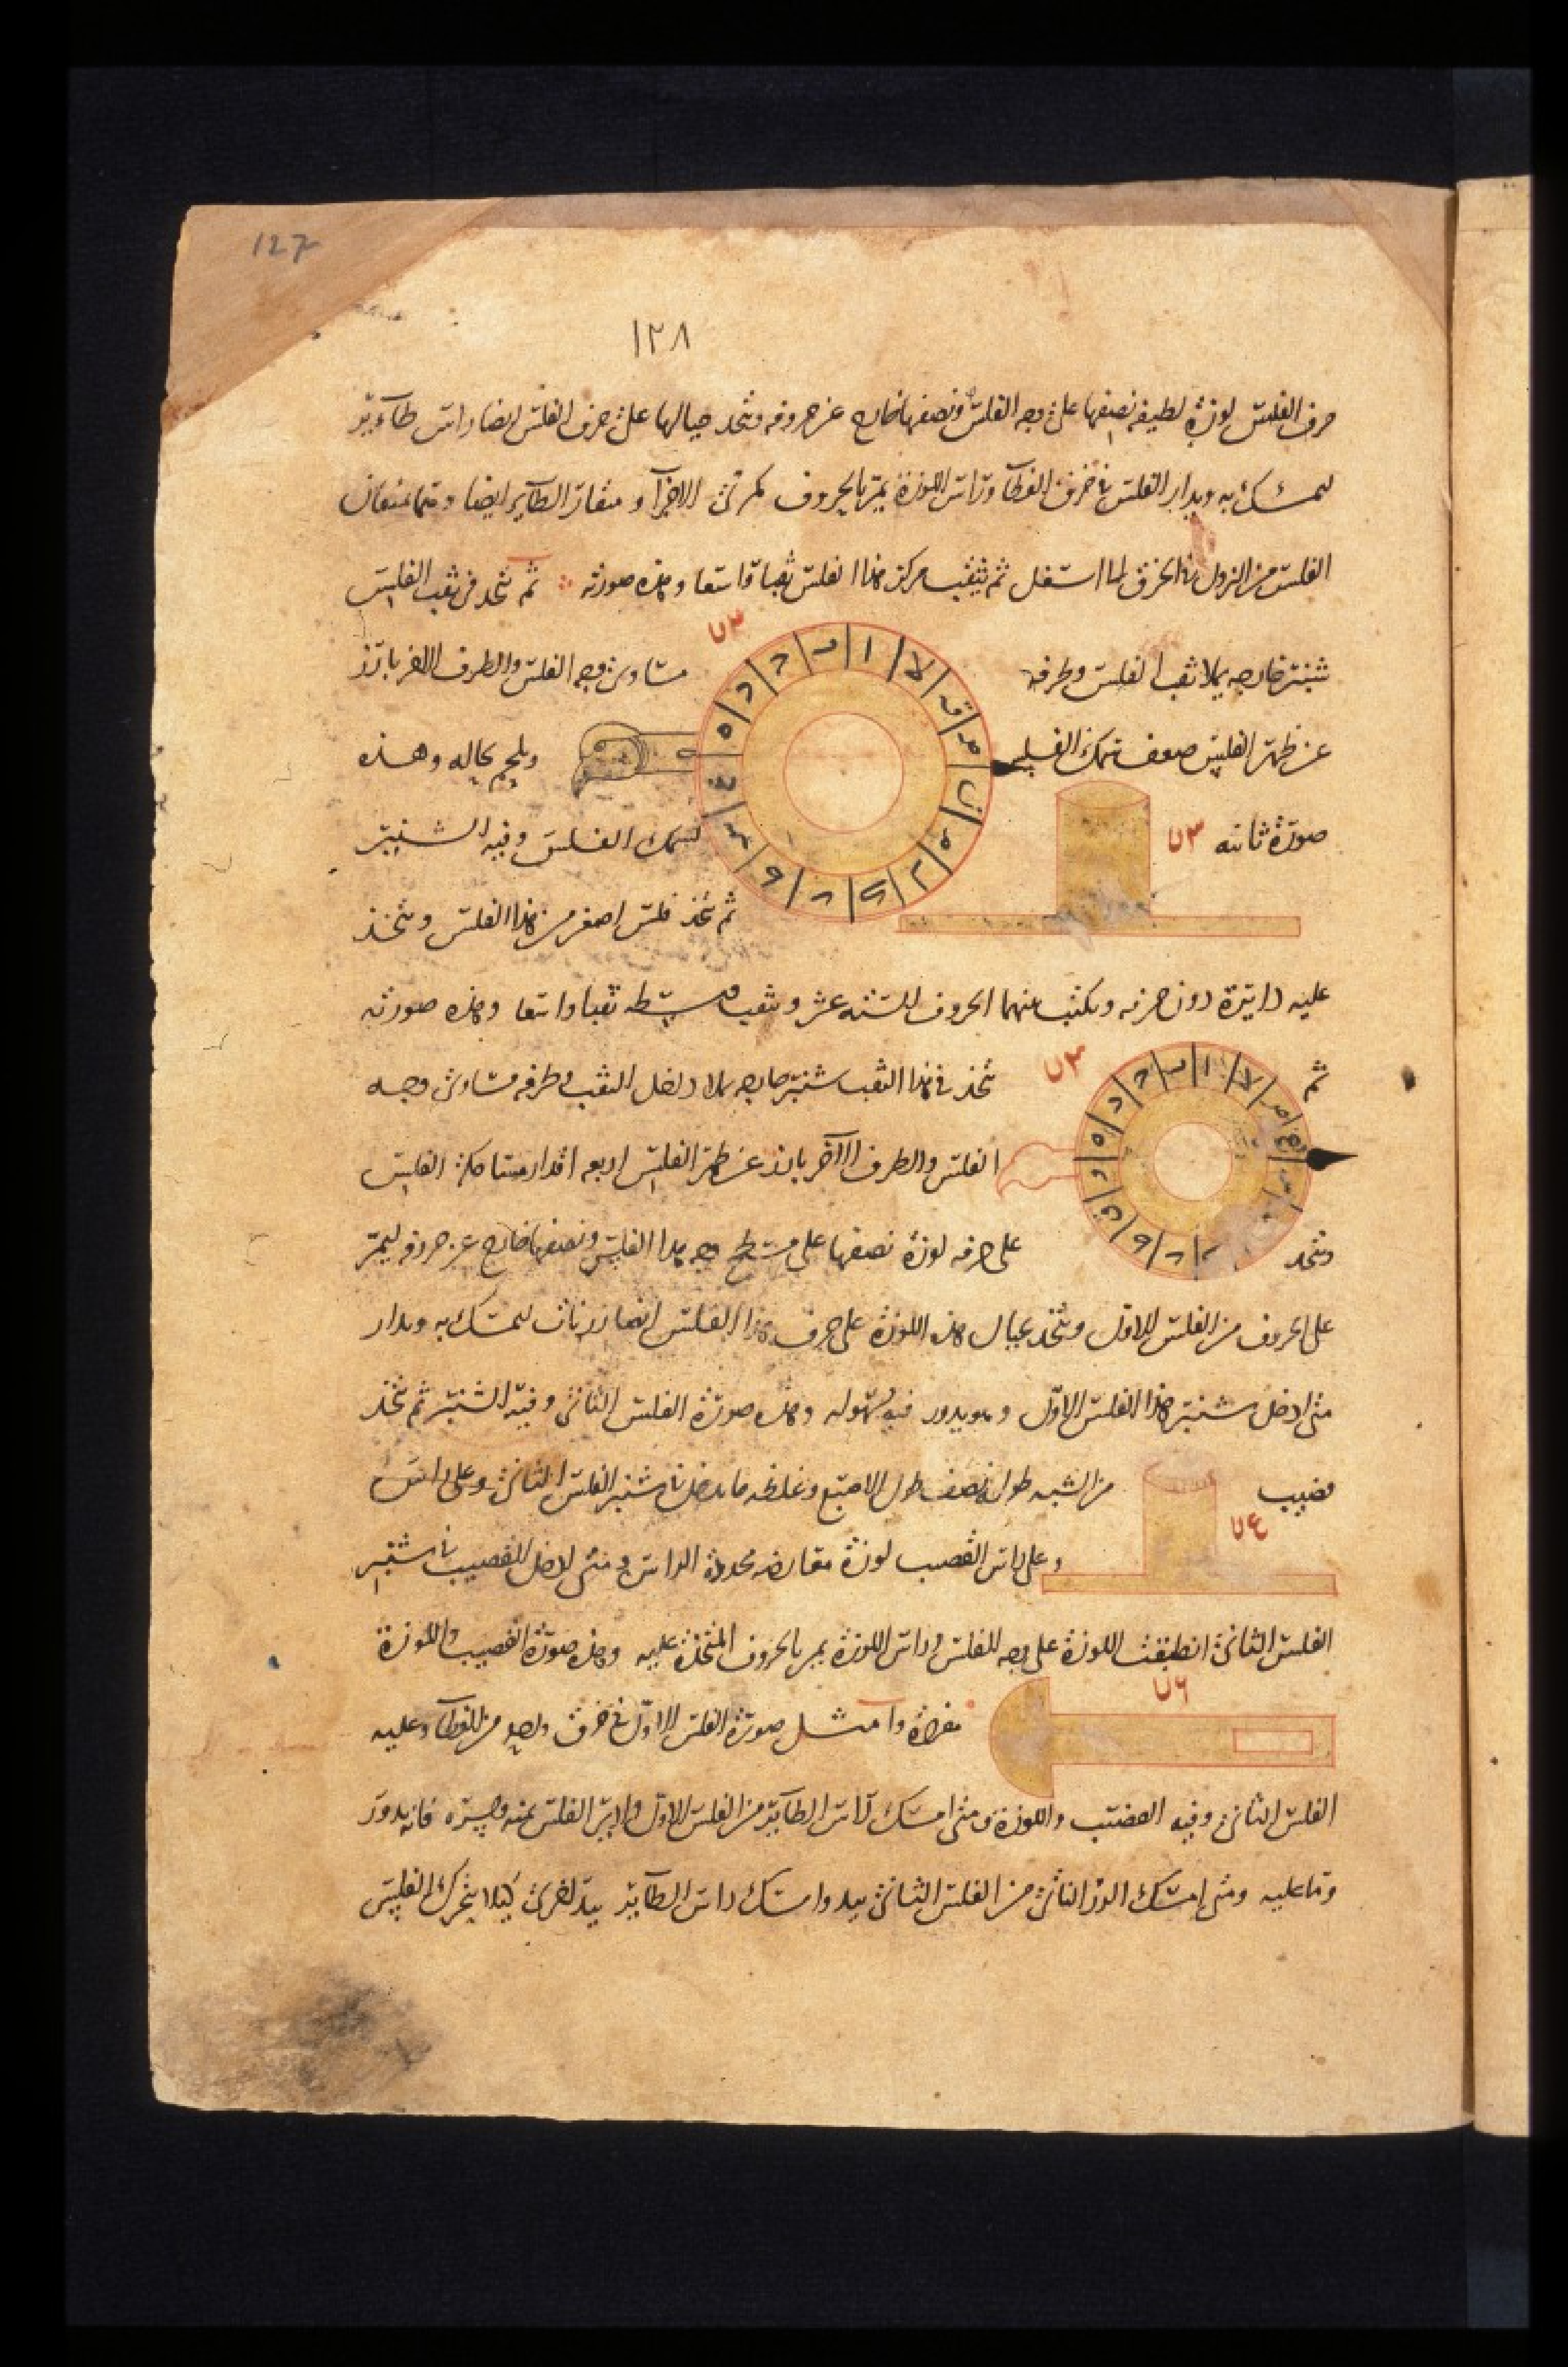 127
١٢٨
حرف الفلس لوزة لطيفة نصفها على وجه الفلس ونصفها خارج عن حروفه ويتخذ حيالها على حرف الفلس ايضا راس طآئر
ليمسك به ويدار الفلس في خرق الغطآ وراس اللوزة يمر بالحروف كمرى الاجزآ و منقار الطآير ايضا وهما يمنعان
الفلس من النزول في الخرق لما استفل ثم يثقب مركز هذا الفلس ثقبا واسعا وهذه صورته ثم يتخذ في ثقب الفلس
٧٢
شنبر خارجه يملا ثقب الفلس وطرفه مساوى وجه الفلس والطرف الاخر بارز
عن ظهر الفلس ضعف سمك الفلس ويلحم بحاله وهذه
صورة ثانيه ٧٣ لسمك الفلس وفيه الشنبر
ثم يتخذ فلس اصغر من هذا الفلس ويتخذ
عليه دايرة دون حرفه ويكتب بينهما الحروف الستة عشر ويثقب وسطه ثقبا واسعا وهذه صورته
ثم ٧٣ يتخذ في هذا الثقب شنبر خارجه يملا داخل الثقب وطرفه مساوى وجه
الفلس والطرف الاخر بارز عن ظهر الفلس اربعه اقدار سماكة الفلس
ويتخذ على حرفه لوزة نصفها على مسطح وجه هذا الفلس ونصفها خارج عن حروفه ليمر
على الحروف من الفلس الاول ويتخذ بحيال هذه اللوزة على حرف هذا الفلس ايضا زر ناتٍ ليمسك به ويدار
متى ادخل شنبر هذا الفلس الاول وهو يدور فيه بسهوله وهذه صورة الفلس الثانى وفيه الشنبر ثم يتخذ
قضيب من الشبه طوله نصف طول الاصبع وغلظه ما يدخل في شنبر الفلس الثانى وعلى راس
٧٤
وعلى راس القضيب لوزة محدودة الراس ومتى ادخل القضيب في شنبر
الفلس الثانى انطبقت اللوزة على وجه الفلس وراس اللوزة يمر بالحروف المتخذة عليه وهذه صورة القضيب واللوزة
٧٦
مفردة وامثل صورة الفلس الاول في خرق واحد من الغطآ وعليه
الفلس الثانى وفيه القضيب واللوزة ومتى امسك راس الطآير من الفلس الاول وادير الفلس يمنه ويسره فانه يدور
وما عليه ومتى امسك الزر الناتى من الفلس الثانى بيد وامسك راس الطآير بيد اخرى كيلا يتحرك الفلس